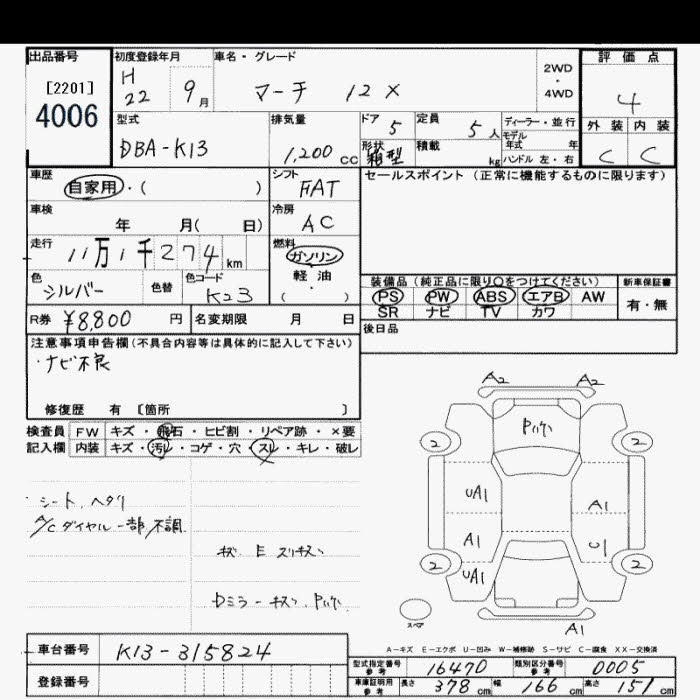 出品番号
[2201]
4006
初度登録年月
H
22 9月
車名・グレード
マーチ 12X
2WD
・
4WD
評価点
4
外装 内装
C C
型式
DBA-K13
排気量
1,200 cc
ドア 5
定員 5人
ディーラー・並行
モデル
年式 年
形状 箱型
積載 kg
ハンドル 左・右
車歴
自家用・( )
シフト
FAT
セールスポイント (正常に機能するものに限ります)
車検
年 月( 日)
冷房
AC
走行
11万1千274km
燃料
ガソリン
軽油・
( )
色
シルバー
色替
色コード
K23
装備品 (純正品に限り○をつけてください)
PS PW ABS エアB AW
SR ナビ TV カワ
新車保証書
有・無
R券 ¥8,800円
名変期限 月 日
後日品
注意事項申告欄(不具合内容等は具体的に記入して下さい)
・ナビ不良
修復歴 有 [箇所 ]
検査員
記入欄
FW キズ・飛石・ヒビ割・リペア跡・×要
内装 キズ・汚レ・コゲ・穴・スレ・キレ・破レ
シート、ヘタリ
A/Cダイヤル一部不調
Dミラーキズ、
A2 A2
2 2
UA1
A1
A1
2 2
UA1
A1
スペア
A-キズ E-エクボ U-凹み W-補修跡 S-サビ C-腐食 XX-交換済
車台番号
K13-315824
登録番号
型式指定番号
参考
16470
類別区分番号
参考
0005
車庫証明用
参考
長さ 378cm
幅 166cm
高さ 151cm